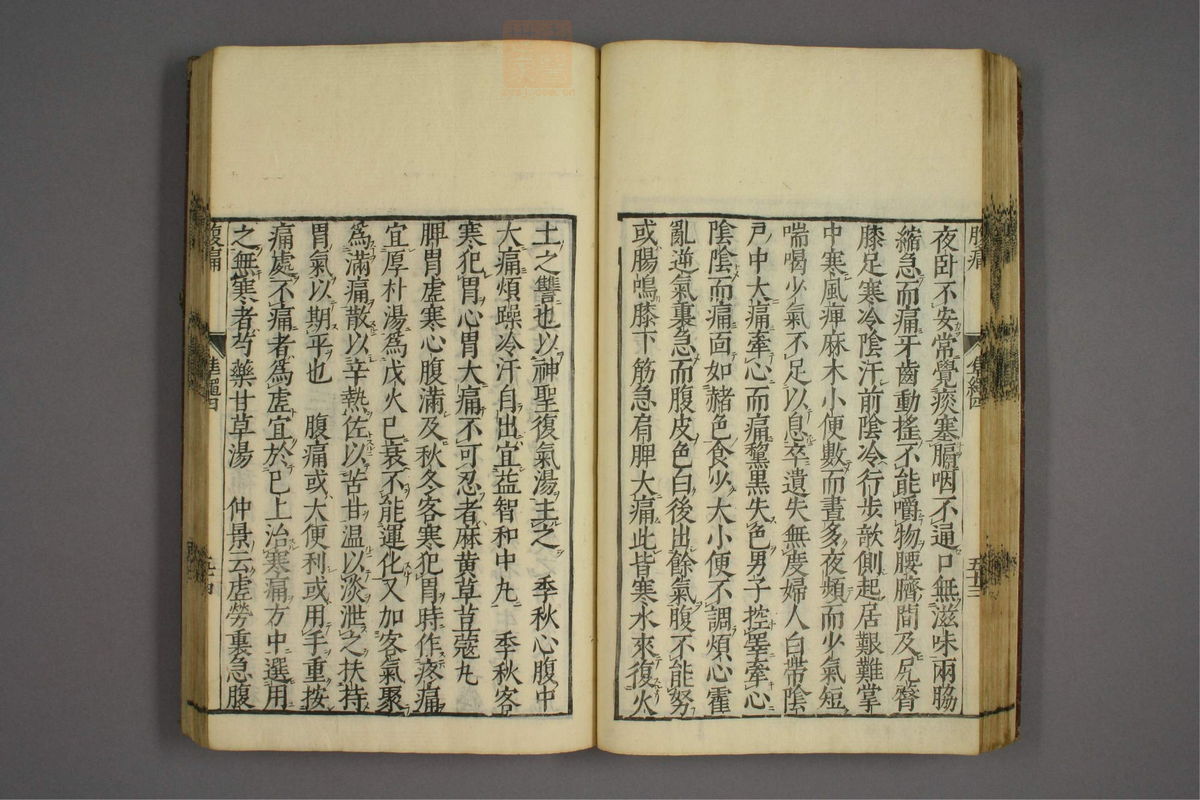 夜臥不安常覺痰塞膈咽不通口無滋味兩脇
縮急而痛牙齒動搖不能嚼物腰臍間及尻臀
膝足寒冷陰汗前陰冷行步欹側起居艱難掌
中寒風痺麻木小便數而晝多夜頻而少氣短
喘喝少氣不足以息卒遺失無度婦人白帶陰
戸中大痛牽心而痛黧黑失色男子控睪牽心
陰陰而痛面如赭色食少大小便不調煩心霍
亂逆氣裏急而腹皮色白後出餘氣腹不能努
或腸鳴膝下筋急肩胛大痛此皆寒水來復火
土之讐也以神聖復氣湯主之　季秋心腹中
大痛煩躁冷汗自出宜益智和中丸　季秋客
寒犯胃心胃大痛不可忍者麻黄草荳蔻丸
脾胃虛寒心腹滿及秋冬客寒犯胃時作疼痛
宜厚朴湯為戊火已衰不能運化又加客氣聚
為滿痛散以辛熱佐以苦甘温以淡泄之扶持
胃氣以期平也　腹痛或大便利或用手重按
痛處不痛者為虛宜於已上治寒痛方中選用
之無寒者芍藥甘草湯　仲景云虛勞裏急腹